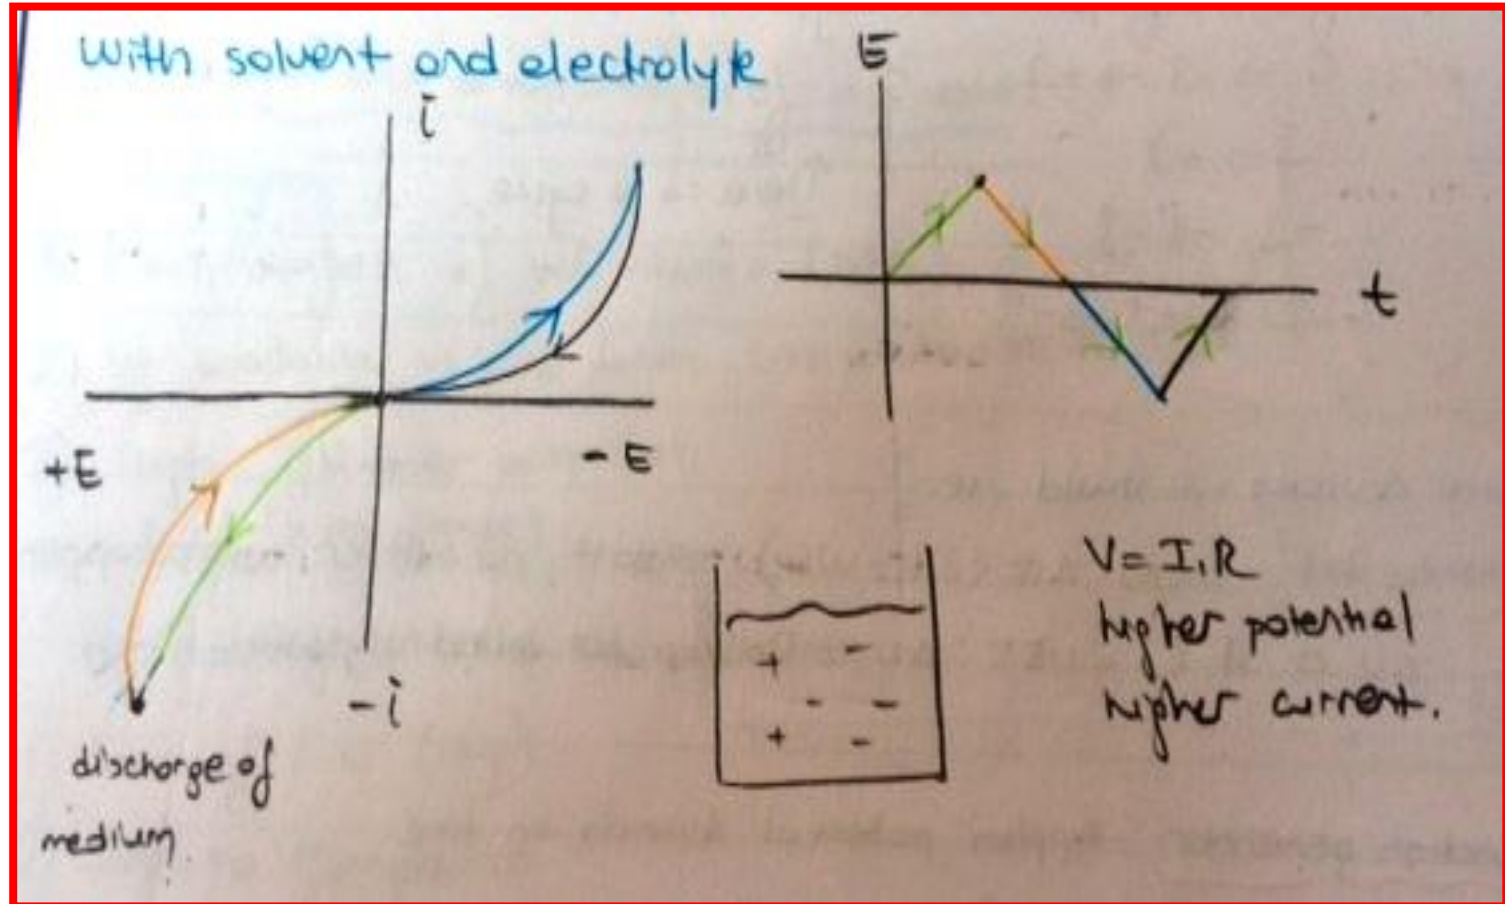 with solvent and electrolyte
i
E
t
+E
- E
-i
discharge of
medium.
+ -
- -
+ -
V= I.R
higher potential
higher current.